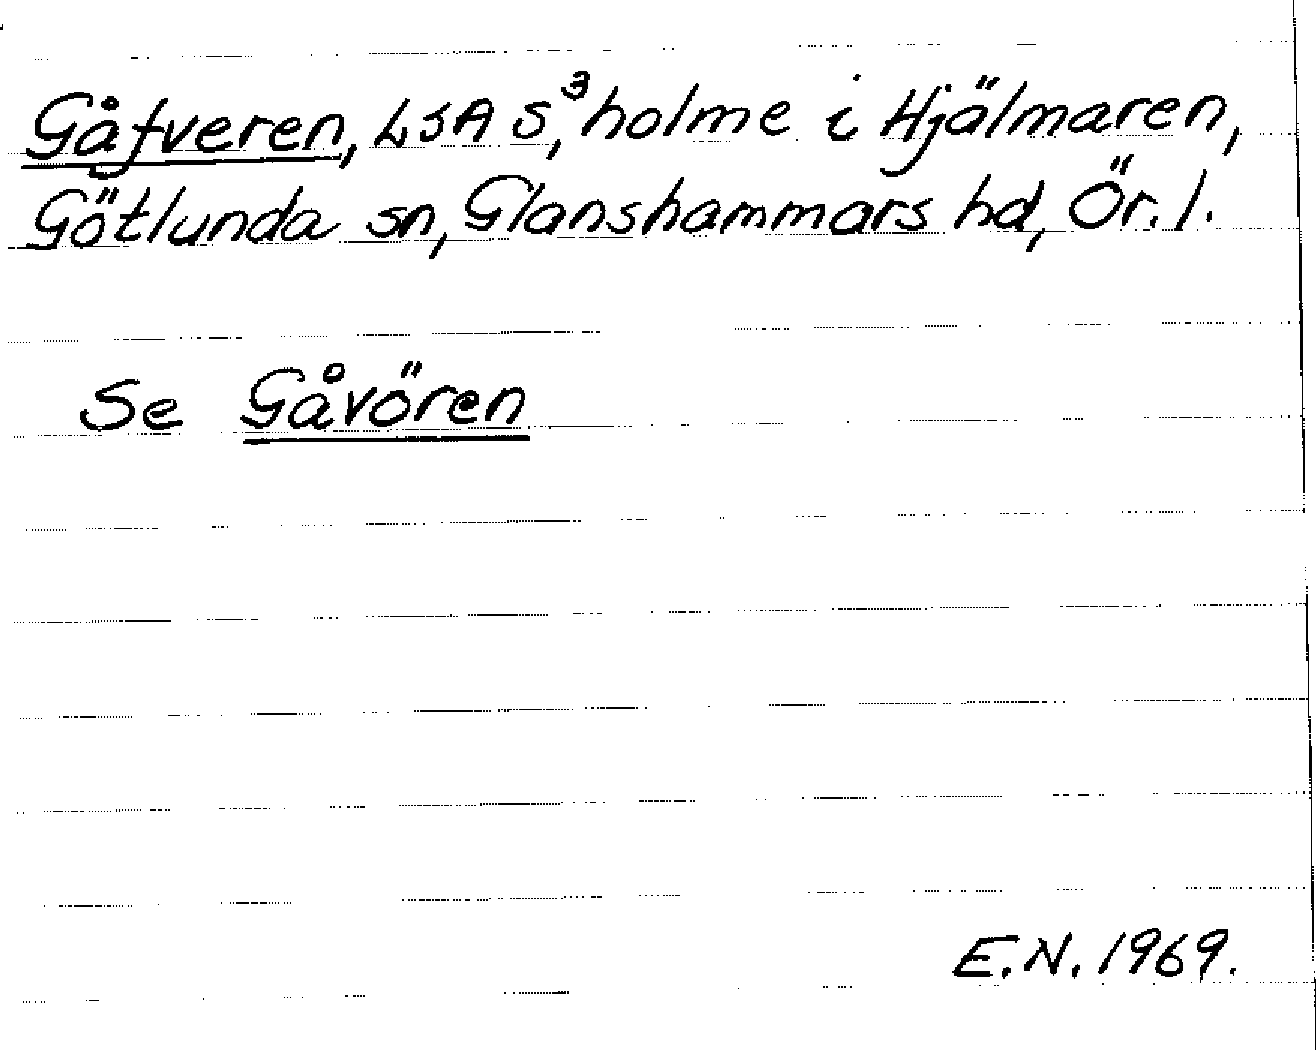 Gåfveren, LSA S³, holme i Hjälmaren,
Götlunda sn, Glanshammars hd, Ör. l.
Se Gåvören
E.N. 1969.